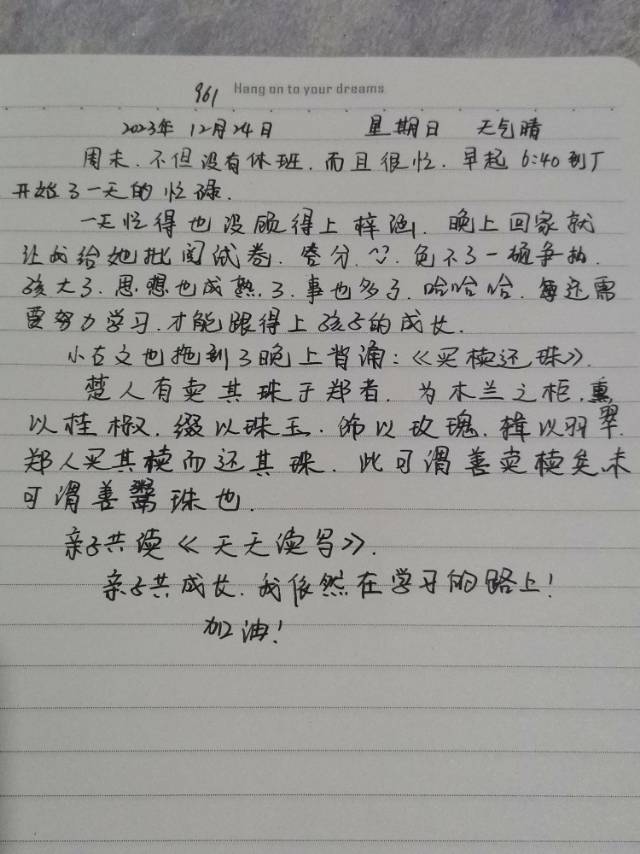 961 Hang on to your dreams
2023年 12月24日 星期日 天气晴
周末,不但没有休班,而且很忙,早起6:40到厂
开始了一天的忙碌.
一天忙得也没顾得上梓涵,晚上回家就
让我给她批阅试卷,合分,免不了一顿争执
孩大了,思想也成熟了,事也多了,哈哈哈,每还需
要努力学习,才能跟得上孩子的成长.
小古文也拖到了晚上背诵:《买椟还珠》.
楚人有卖其珠于郑者,为木兰之柜,熏
以桂椒,缀以珠玉,饰以玫瑰,楫以羽翠.
郑人买其椟而还其珠,此可谓善卖椟矣未
可谓善鬻珠也.
亲子共读《天天读写》.
亲子共成长,我依然在学习的路上!
加油!